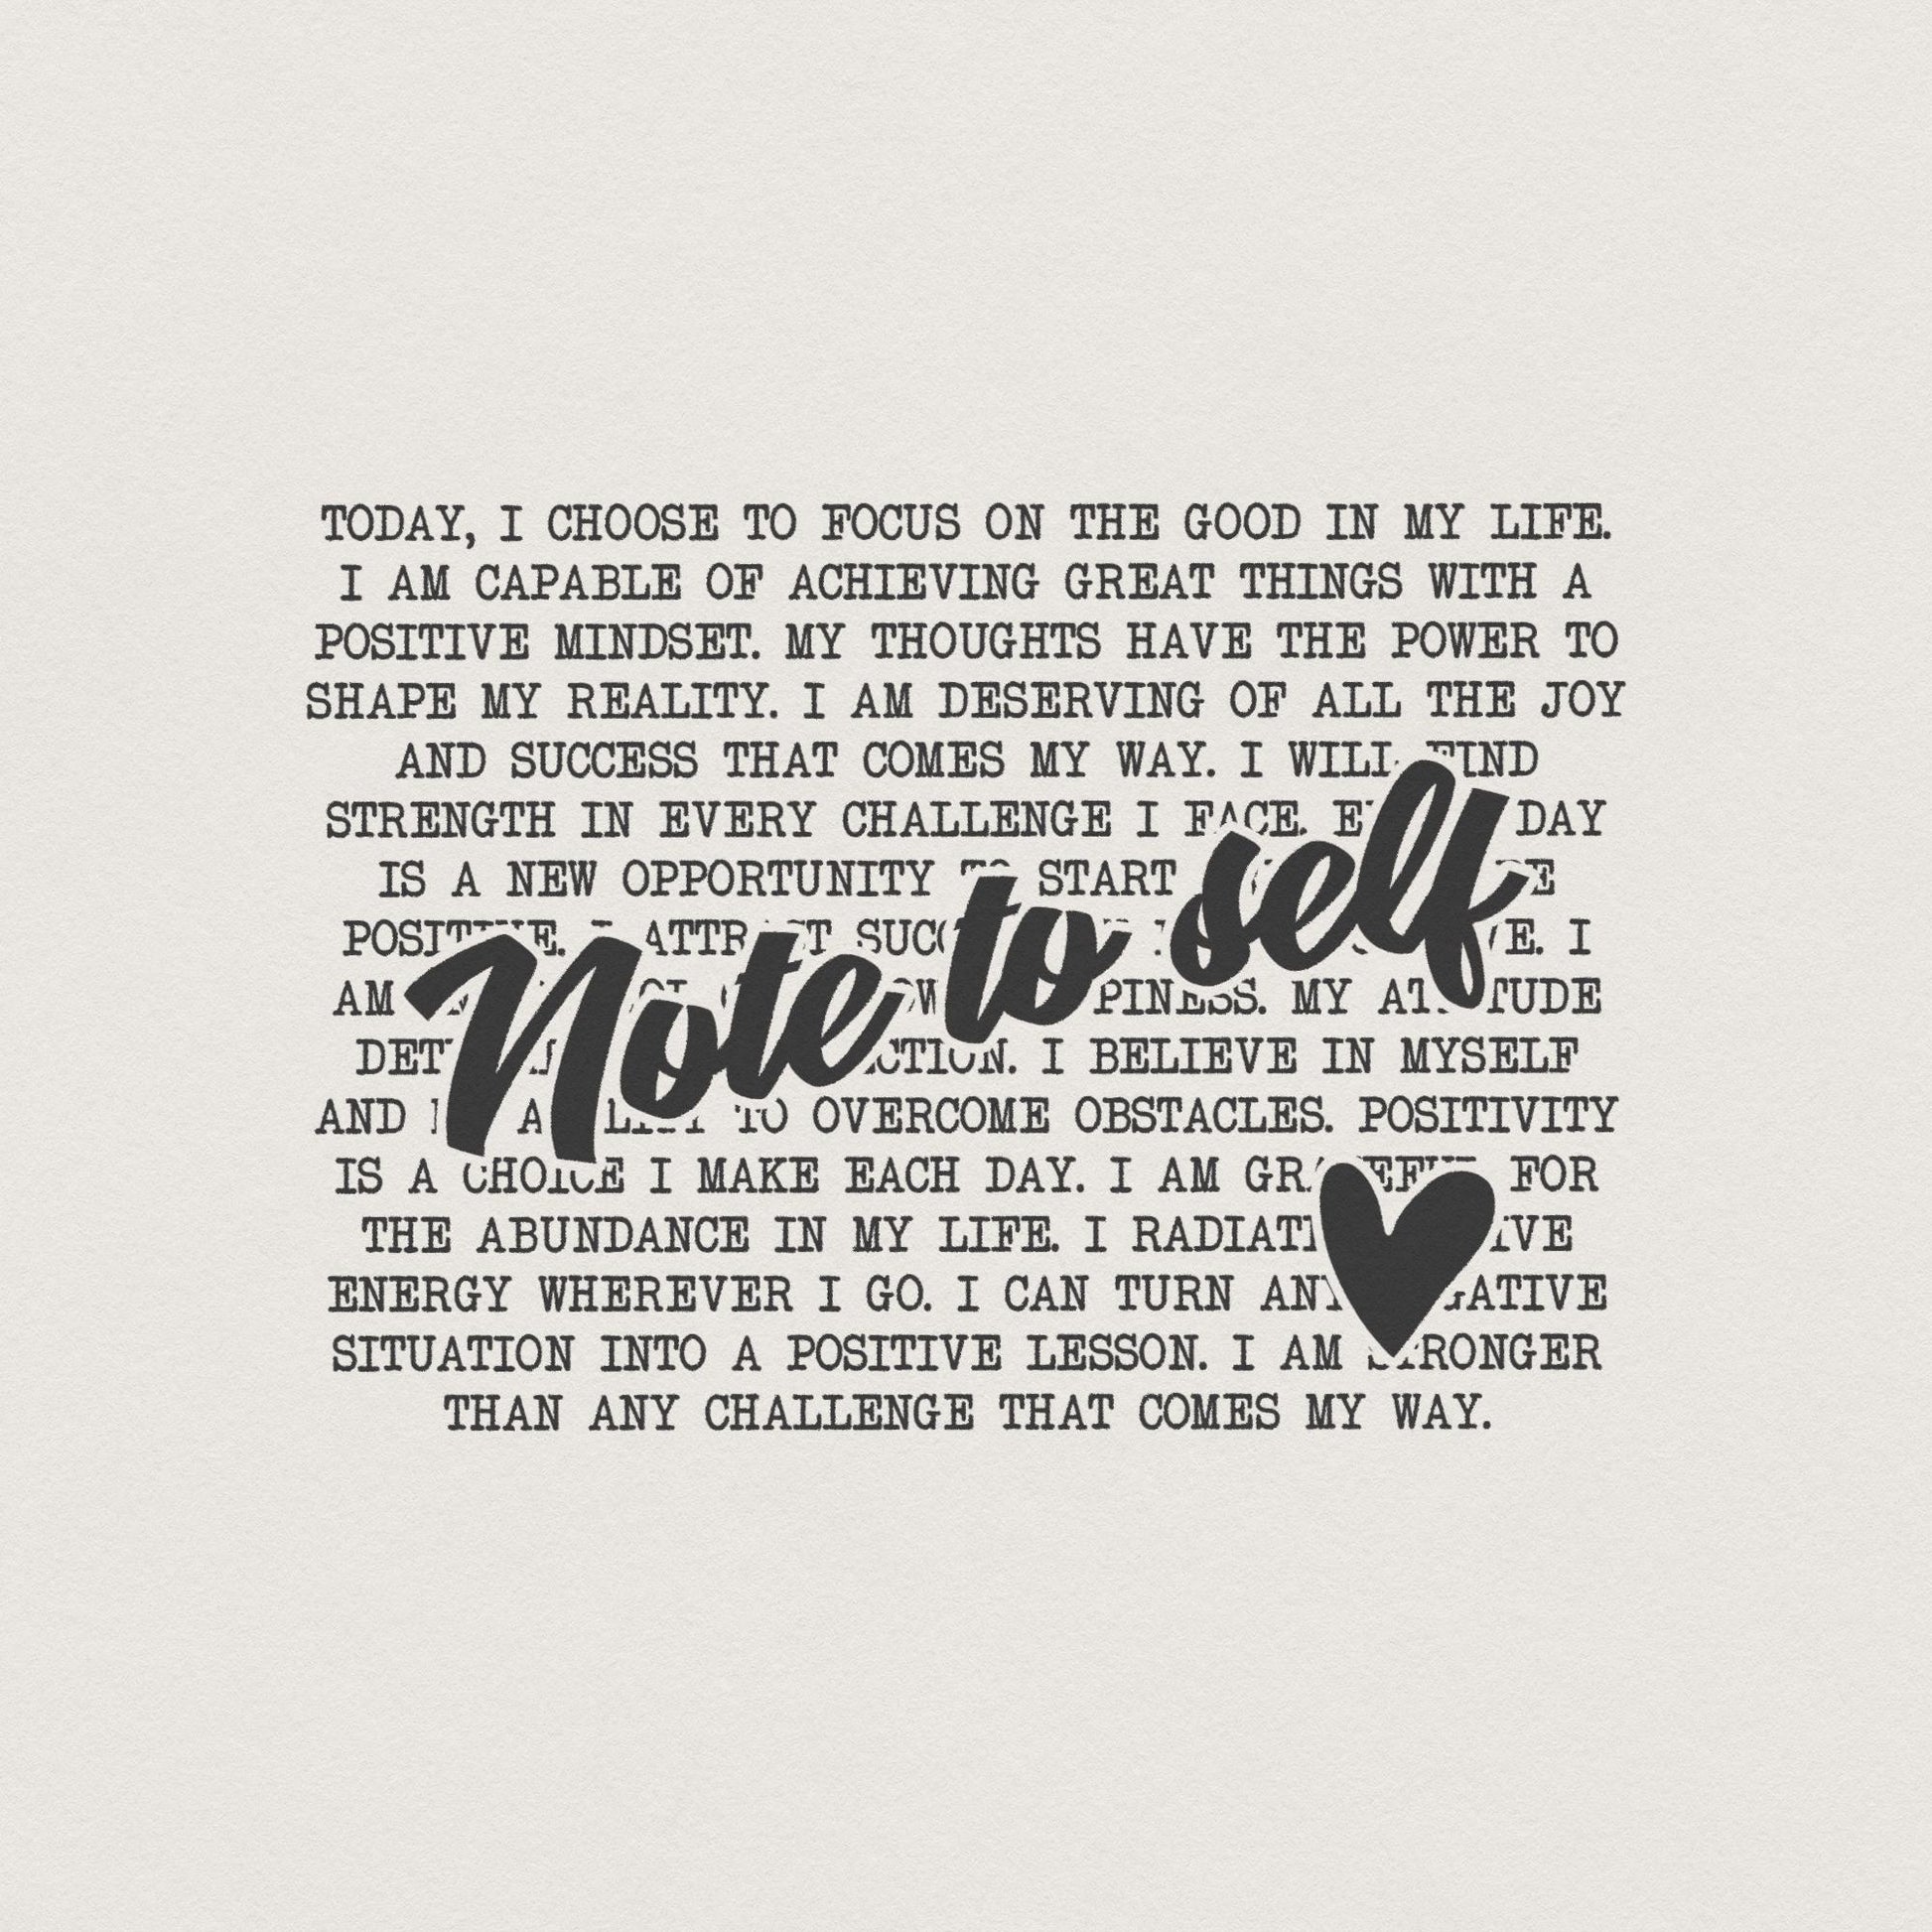 TODAY, I CHOOSE TO FOCUS ON THE GOOD IN MY LIFE.
I AM CAPABLE OF ACHIEVING GREAT THINGS WITH A
POSITIVE MINDSET. MY THOUGHTS HAVE THE POWER TO
SHAPE MY REALITY. I AM DESERVING OF ALL THE JOY
AND SUCCESS THAT COMES MY WAY. I WILL FIND
STRENGTH IN EVERY CHALLENGE I FACE. DAY
IS A NEW OPPORTUNITY TO START
POSITIVE. I ATTRACT I
AM MY ATTITUDE
I BELIEVE IN MYSELF
AND TO OVERCOME OBSTACLES. POSITIVITY
IS A CHOICE I MAKE EACH DAY. I AM GRATEFUL FOR
THE ABUNDANCE IN MY LIFE. I RADIATE
ENERGY WHEREVER I GO. I CAN TURN ANY NEGATIVE
SITUATION INTO A POSITIVE LESSON. I AM STRONGER
THAN ANY CHALLENGE THAT COMES MY WAY.
Note to self